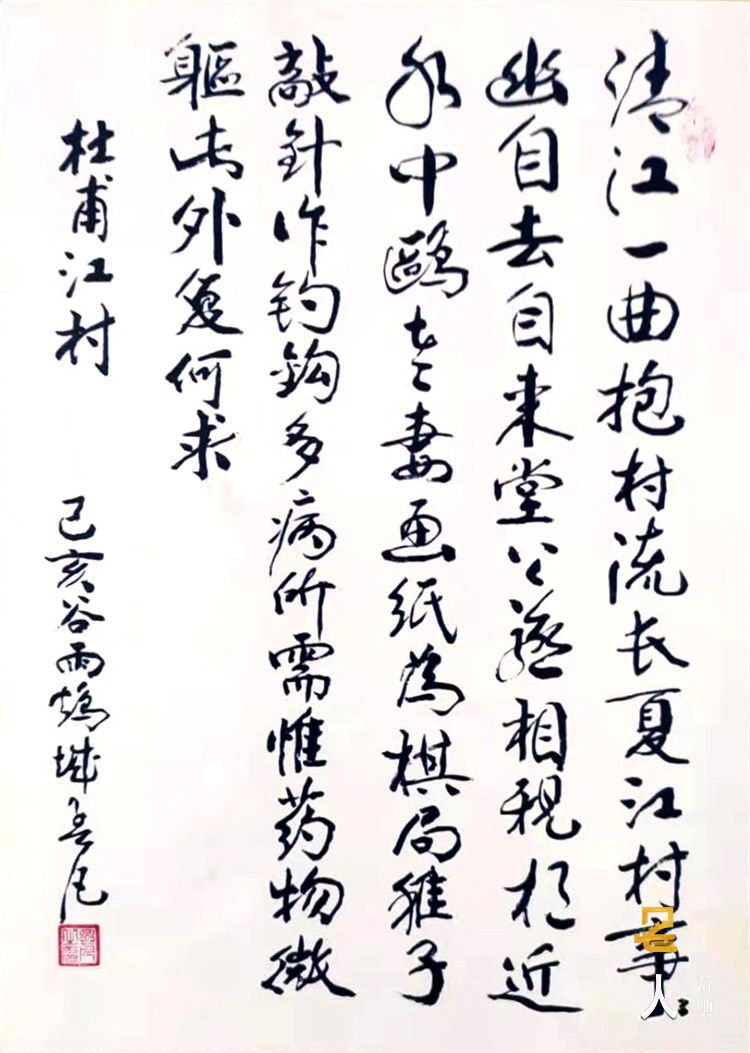 清江一曲抱村流长夏江村事々
幽自去自来堂上燕相親相近
水中鷗老妻画纸為棋局稚子
敲針作钓鈎多病所需惟药物微
軀此外复何求
杜甫江村
己亥谷雨城
名人